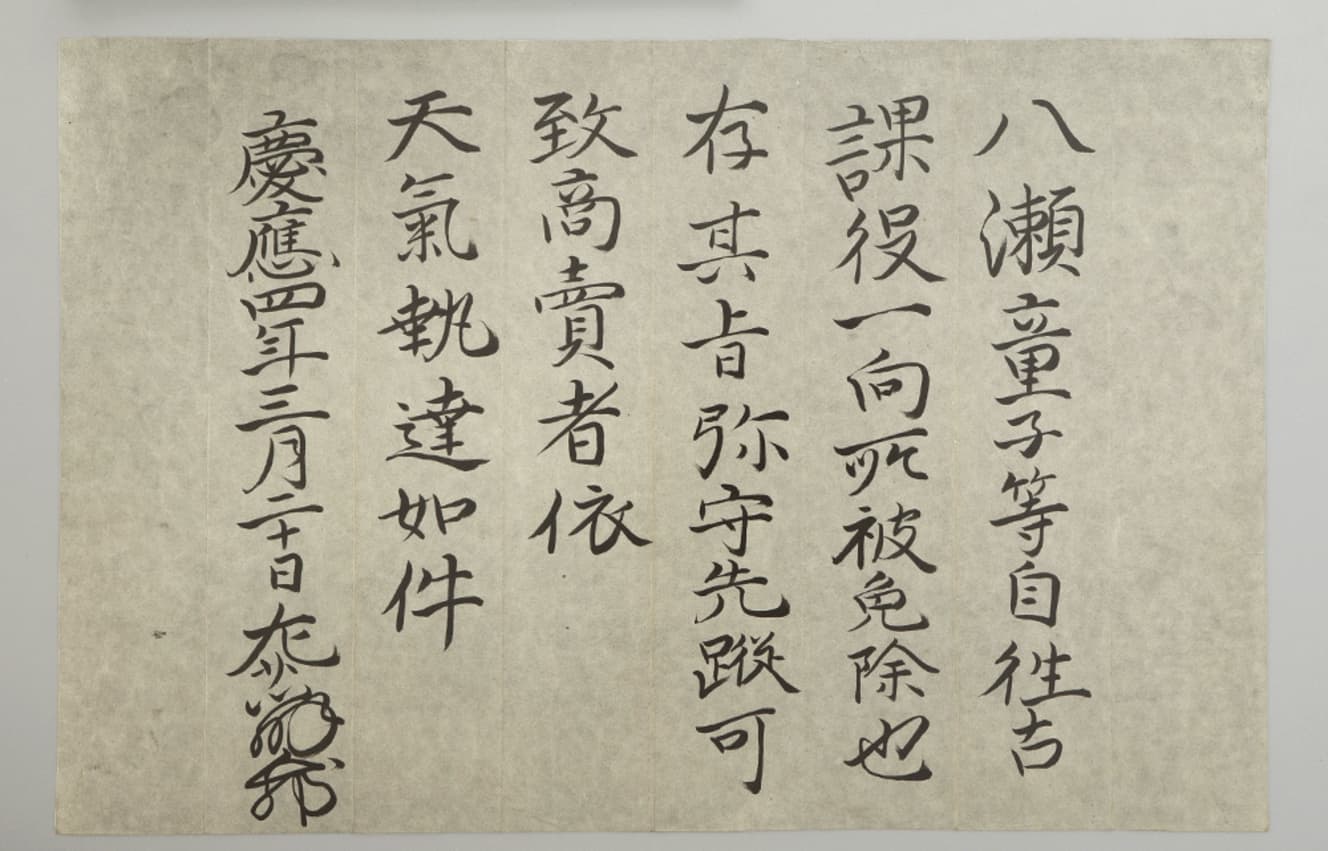 八瀬童子等自往古
課役一向所被免除也
存其旨弥守先蹤可
致商賣者依
天氣執達如件
慶應四年三月二十日 泰